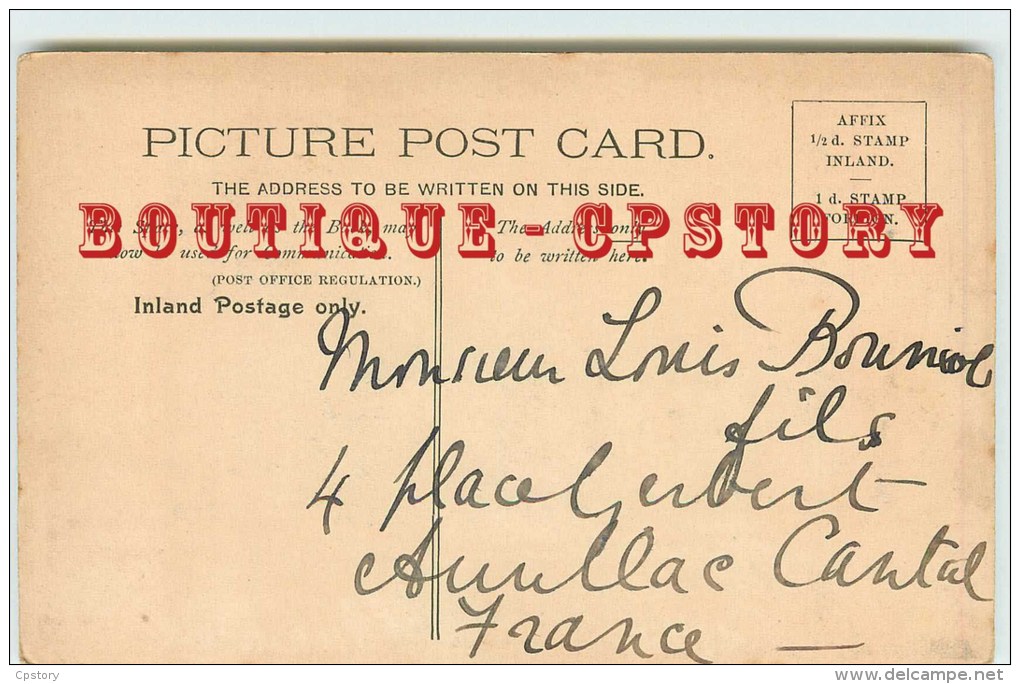 PICTURE POST CARD.
THE ADDRESS TO BE WRITTEN ON THIS SIDE.
AFFIX
1/2 d. STAMP
INLAND.
1 d. STAMP
FOREIGN.
BOUTIQUE - CPSTORY
The Space, as well as the Back, may
now be used for Communication.
(POST OFFICE REGULATION.)
Inland Postage only.
The Address only
to be written here.
Monsieur Louis Bouniol
fils
4 place Gerbert
Aurillac Cantal
France
Cpstory
www.delcampe.net